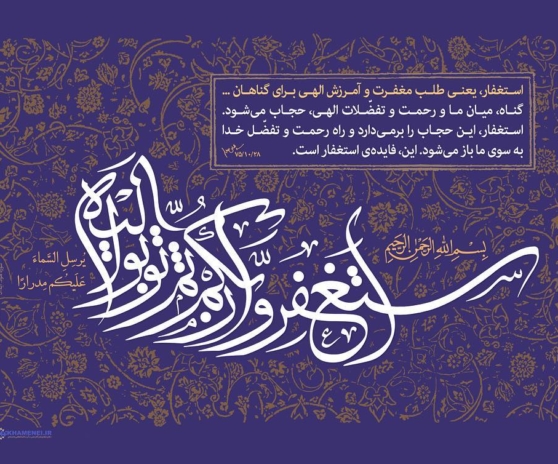 استغفار، یعنی طلب مغفرت و آمرزش الهی برای گناهان ...
گناه، میان ما و رحمت و تفضّلات الهی، حجاب می‌شود.
استغفار، این حجاب را برمی‌دارد و راه رحمت و تفضّل خدا
به سوی ما باز می‌شود. این، فایده‌ی استغفار است.
۷۵/۱۰/۲۸
بسم الله الرحمن الرحیم
استغفروا ربكم ثم توبوا اليه
يرسل السماء
عليكم مدرارا
KHAMENEI.IR